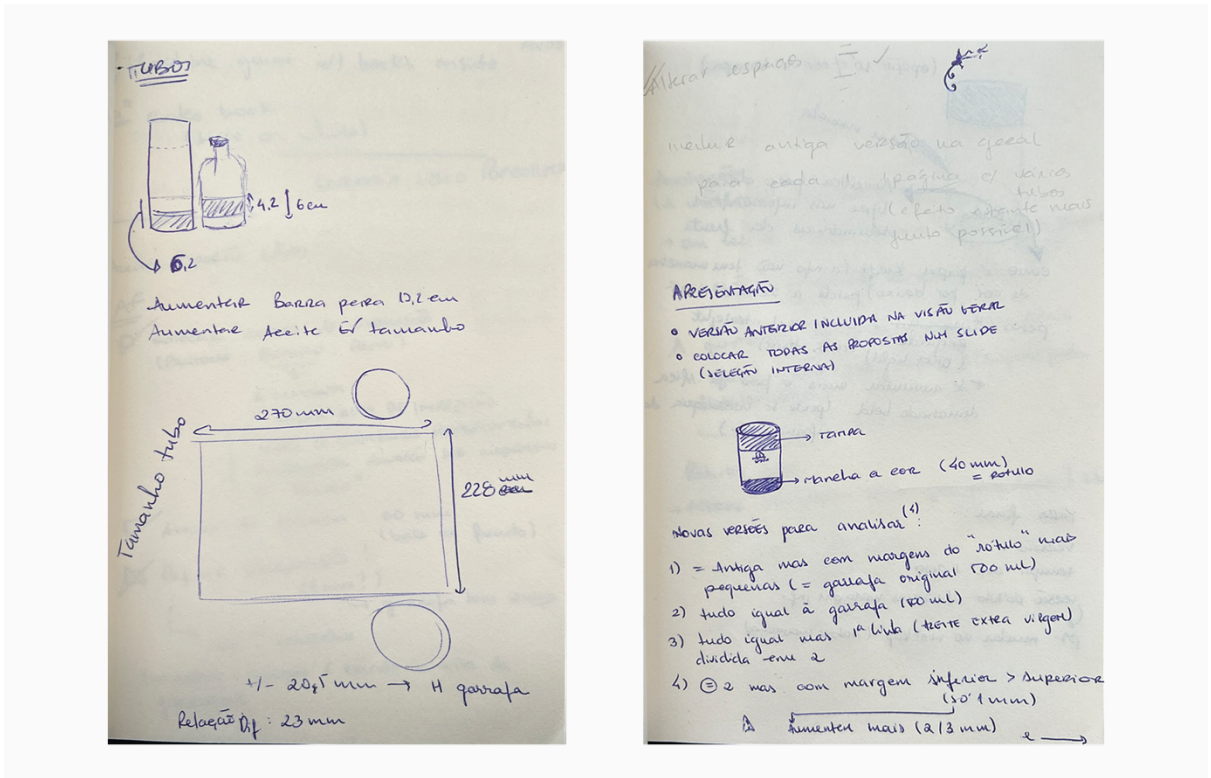 TUBOS
4.2
6 cm
,2
Aumentar Barra para cm
Aumentar tamanho
270 mm
Tamanho tubo
228 mm
+/- mm → H garrafa
Relação Dif: 23 mm
Alterar
antiga versão na geral
para cada 1 página c/ vários
tubos
(efeito estante mais
junto possível)
APRESENTAÇÃO
• VERSÃO ANTERIOR INCLUIDA NA VISÃO GERAL
• COLOCAR TODAS AS PROPOSTAS NUM SLIDE
(SELEÇÃO INTERNA)
→ TAMPA
→ Mancha a cor (40 mm)
= ROTULO
NOVAS VERSÕES para analisar (4):
1) = Antiga mas com margens do "rótulo" mais
pequenas (= garrafa original 500 ml)
2) tudo igual à garrafa (500 ml)
3) tudo igual mas 1ª linha ( EXTRA VIRGEM)
dividida em 2
4) = 2 mas com margem inferior > superior
(só 1 mm)
Aumentar mais (2/3 mm)
e →